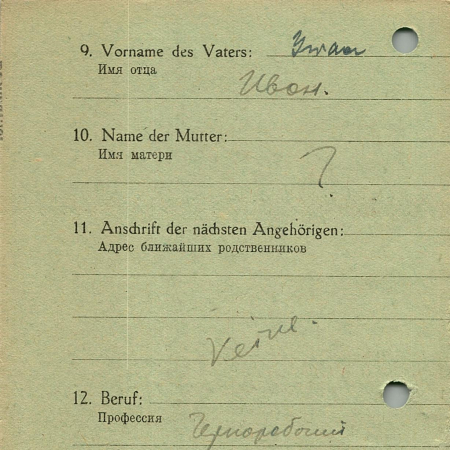 9. Vorname des Vaters: Iwan
Имя отца
Ивон.
10. Name der Mutter:
Имя матери
?
11. Anschrift der nächsten Angehörigen:
Адрес ближайших родственников
Keine.
12. Beruf:
Профессия Чернорабочий